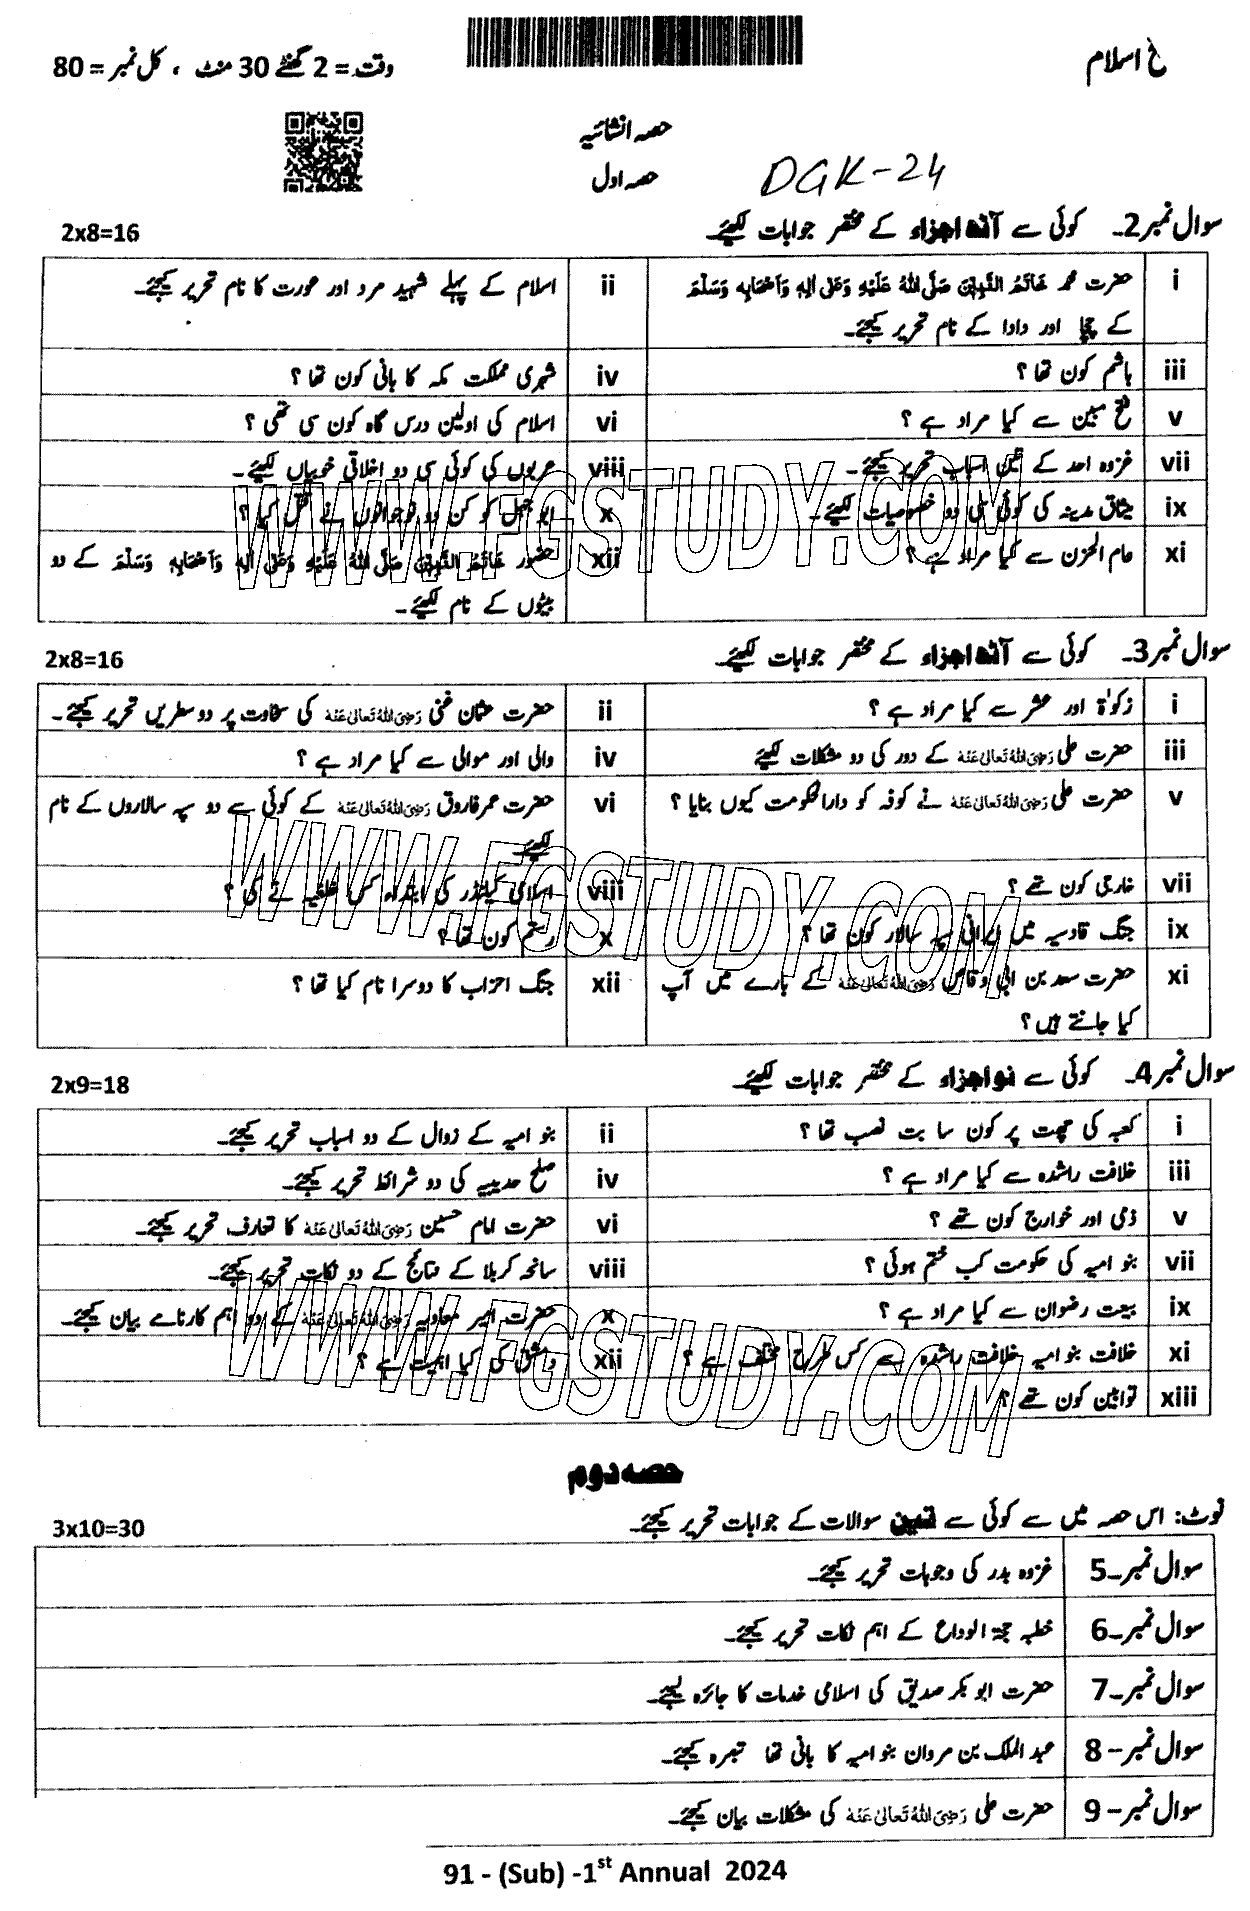 خ اسلام
وقت = 2 گھنٹے 30 منٹ ، کل نمبر = 80
حصہ انشائیہ
حصہ اول
DGK-24
سوال نمبر 2۔ کوئی سے آٹھ اجزاء کے مختصر جوابات لکھیئے۔ 2x8=16
i حضرت محمد خَاتَمُ النَّبِیّٖنَ صَلَّی اللہُ عَلَیْہِ وَعَلٰی اٰلِہٖ وَاَصْحَابِہٖ وَسَلَّمَ
کے چچا اور دادا کے نام تحریر کیجئے۔
ii اسلام کے پہلے شہید مرد اور عورت کا نام تحریر کیجئے۔
iii ہاشم کون تھا ؟
iv شہری مملکت مکہ کا بانی کون تھا ؟
v فتح مبین سے کیا مراد ہے ؟
vi اسلام کی اولین درس گاہ کون سی تھی ؟
vii غزوہ احد کے تین اسباب تحریر کیجئے۔
viii عربوں کی کوئی سی دو اخلاقی خوبیاں لکھیئے۔
ix میثاق مدینہ کی کوئی سی دو خصوصیات لکھیئے۔
x ابو جہل کو کن دو نوجوانوں نے قتل کیا ؟
xi عام الحزن سے کیا مراد ہے ؟
xii حضور خَاتَمُ النَّبِیّٖنَ صَلَّی اللہُ عَلَیْہِ وَعَلٰی اٰلِہٖ وَاَصْحَابِہٖ وَسَلَّمَ کے دو
بیٹوں کے نام لکھیئے۔
سوال نمبر 3۔ کوئی سے آٹھ اجزاء کے مختصر جوابات لکھیئے۔ 2x8=16
i زکوٰۃ اور عشر سے کیا مراد ہے ؟
ii حضرت عثمان غنی رَضِیَ اللہُ تَعَالٰی عَنْہُ کی سخاوت پر دو سطریں تحریر کیجئے۔
iii حضرت علی رَضِیَ اللہُ تَعَالٰی عَنْہُ کے دور کی دو مشکلات لکھیئے
iv والی اور موالی سے کیا مراد ہے ؟
v حضرت علی رَضِیَ اللہُ تَعَالٰی عَنْہُ نے کوفہ کو دارالحکومت کیوں بنایا ؟
vi حضرت عمر فاروق رَضِیَ اللہُ تَعَالٰی عَنْہُ کے کوئی سے دو سپہ سالاروں کے نام
لکھیئے
vii خارجی کون تھے ؟
viii اسلامی کیلنڈر کی ابتداء کس خلیفہ نے کی ؟
ix جنگ قادسیہ میں ایرانی سپہ سالار کون تھا ؟
x رستم کون تھا ؟
xi حضرت سعد بن ابی وقاص رَضِیَ اللہُ تَعَالٰی عَنْہُ کے بارے میں آپ
کیا جانتے ہیں؟
xii جنگ احزاب کا دوسرا نام کیا تھا ؟
سوال نمبر 4۔ کوئی سے نو اجزاء کے مختصر جوابات لکھیئے۔ 2x9=18
i کعبہ کی چھت پر کون سا بت نصب تھا ؟
ii بنو امیہ کے زوال کے دو اسباب تحریر کیجئے۔
iii خلافت راشدہ سے کیا مراد ہے ؟
iv صلح حدیبیہ کی دو شرائط تحریر کیجئے۔
v ذمی اور خوارج کون تھے ؟
vi حضرت امام حسین رَضِیَ اللہُ تَعَالٰی عَنْہُ کا تعارف تحریر کیجئے۔
vii بنو امیہ کی حکومت کب ختم ہوئی ؟
viii سانحہ کربلا کے نتائج کے دو نکات تحریر کیجئے۔
ix بیعت رضوان سے کیا مراد ہے ؟
x حضرت امیر معاویہ رَضِیَ اللہُ تَعَالٰی عَنْہُ کے دو اہم کارنامے بیان کیجئے۔
xi خلافت بنو امیہ خلافت راشدہ سے کس طرح مختلف ہے ؟
xii دمشق کی کیا اہمیت ہے ؟
xiii توابین کون تھے ؟
حصہ دوم
نوٹ: اس حصہ میں سے کوئی سے تین سوالات کے جوابات تحریر کیجئے۔ 3x10=30
سوال نمبر 5۔ غزوہ بدر کی وجوہات تحریر کیجئے۔
سوال نمبر 6۔ خطبہ حجۃ الوداع کے اہم نکات تحریر کیجئے۔
سوال نمبر 7۔ حضرت ابو بکر صدیق کی اسلامی خدمات کا جائزہ لیجئے۔
سوال نمبر 8 - عبد الملک بن مروان بنو امیہ کا بانی تھا تبصرہ کیجئے۔
سوال نمبر 9 - حضرت علی رَضِیَ اللہُ تَعَالٰی عَنْہُ کی مشکلات بیان کیجئے۔
91 - (Sub) -1st Annual 2024
WWW.FGSTUDY.COM
WWW.FGSTUDY.COM
WWW.FGSTUDY.COM